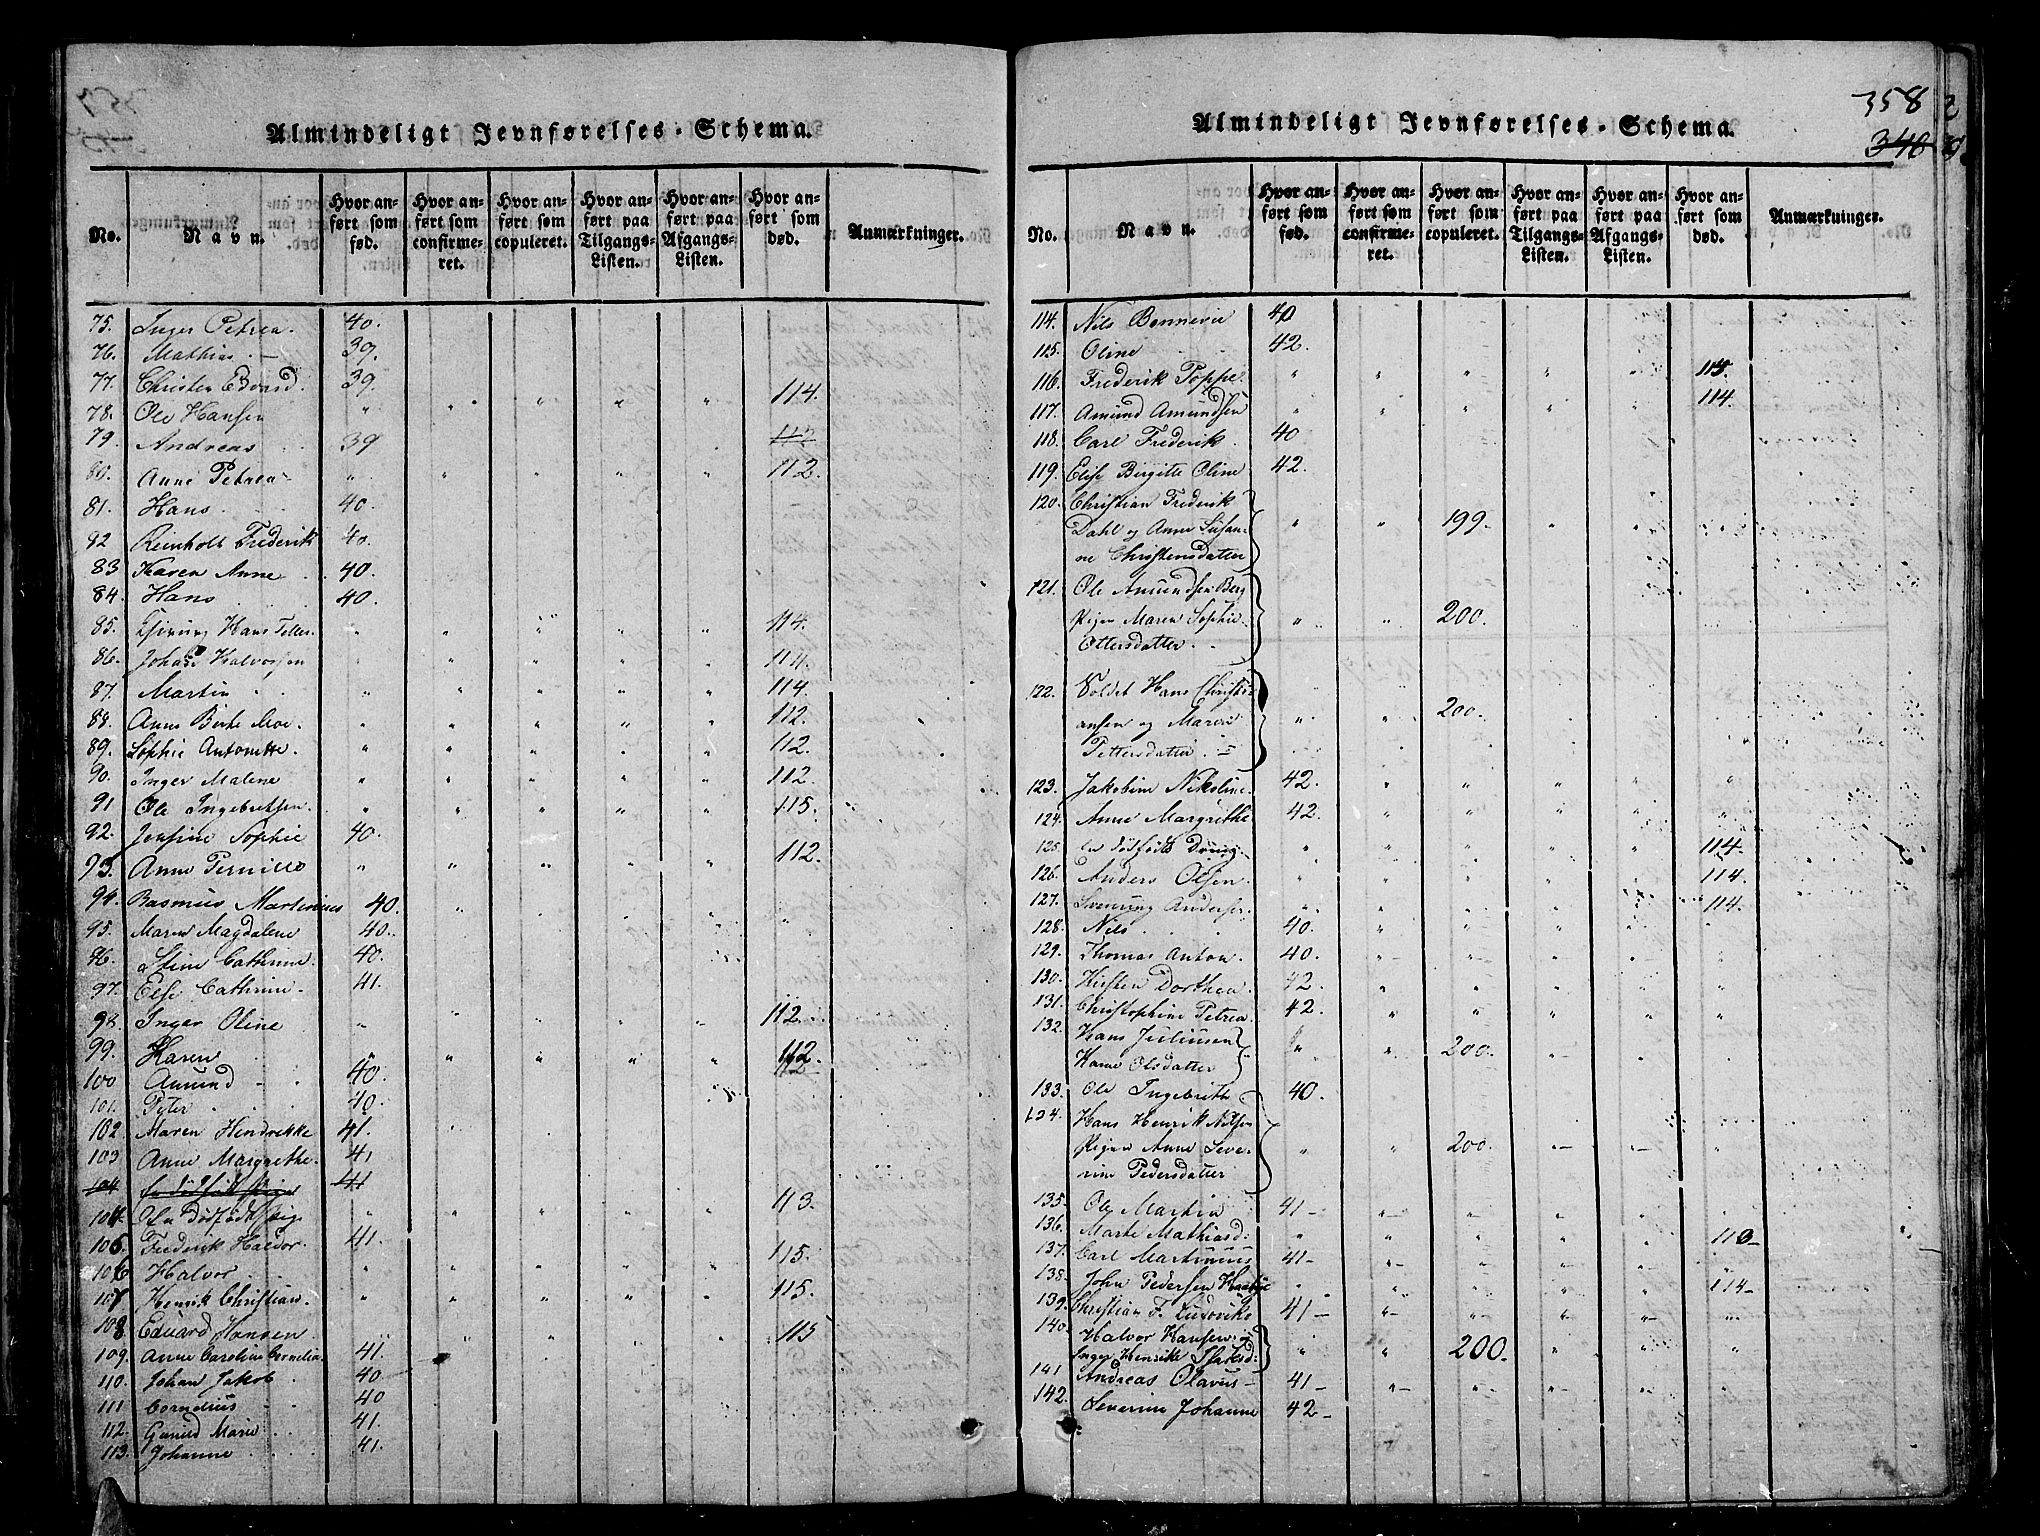 Almindeligt Jevnførelses-Schema.
No.
Navn.
Hvor anført som fød.
Hvor anført som confirmeret.
Hvor anført som copuleret.
Hvor anført paa Tilgangs-Listen.
Hvor anført paa Afgangs-Listen.
Hvor anført som død.
Anmærkninger.
75. Inger Petrea. 40.
76. Mathias — 39.
77. Christen Edvard. 39.
78. Ole Hansen " " " " " 114.
79. Andreas 39 112
80. Anne Petrea " " " " " 112.
81. Hans 40.
82 Reinholt Frederik 40.
83 Karen Anne 40.
84. Hans 40.
85. Hans " " " " " 114.
86. Johan Halvorsen " " " " " 114.
87. Martin " " " " " 114.
88. Anne Birte Moe " " " " " 112.
89. Sophie Antonette. " " " " " 112.
90. Inger Malene " " " " " 112.
91 Ole Ingebretsen. " " " " " 115.
92. Josfine Sophie 40.
93. Anne Pernille " " " " " 112.
94. Rasmus Martinus 40.
95. Maren Magdalene 40.
96. Stine Cathrine. 40.
97. Else Cathrine. 41.
98. Inger Oline " " " " " 112.
99. Karen " " " " " 112.
100 Amund 40.
101. Peter 40.
102 Maren Hendrikke 41.
103 Anne Margrethe. 41
104 En dødfødt Pige 41
104. En Dødfødt Pig " " " " " 113.
105. Frederik Haldor. 41.
106 Halvor " " " " " 115.
107 Henrik Christian. " " " " " 115.
108 Eduard Hansen. " " " " " 115
109. Anne Caroline Cornelia. 41.
110. Johan Jakob 40
111 Cornelius 40
112. Gunild Marie 41.
113. Johanne 41.
358
348
Almindeligt Jevnførelses-Schema.
No.
Navn.
Hvor anført som fød.
Hvor anført som confirmeret.
Hvor anført som copuleret.
Hvor anført paa Tilgangs-Listen.
Hvor anført paa Afgangs-Listen.
Hvor anført som død.
Anmærkninger.
114. Nils Bonnevie 40
115. Oline 42.
116. Frederik Poppe. " " " " " 115.
117. Amund Amundsen " " " " " 114.
118. Carl Frederik. 40
119. Elise Birgitte Oline 42.
120. Christian Frederik
Dahl og Anne Susan- " " 199.
ne Christensdatter
121. Ole Amundsen Berg
Pigen Maren Sophie " " 200.
Ottersdatter.
122. Soldet Hans Christi-
ansen og Maren " " 200.
Pettersdatter
123. Jakobine Nikoline 42.
124. Anne Margrethe. 42.
125. En dødfødt Dreng " " " " " 114.
126. Anders Olsen. " " " " " 114.
127. Anderse. " " " " " 114.
128. Nils 40.
129. Thomas Anton. 40.
130. Kirsten Dorthea. 42.
131. Christophine Petrea. 42.
132. Hans Juliusen " " 200.
Karen Olsdatter
133. Ole Ingebrith 40.
134. Hans Henrik Nilsen
Pigen Anne Seve- " " 200.
rine Pedersdatter
135. Ole Martin 41—
136. Marte Mathiasd: " " " " " 113—
137. Carl Martinius 41—
138. John Pedersen " " " " " 114—
139. Christian F. Ludovik 41—
140. Halvor Hansen og " " 200.
Inger Henrikke
141 Andreas Olavus 41—
142. Severine Johanne 42—